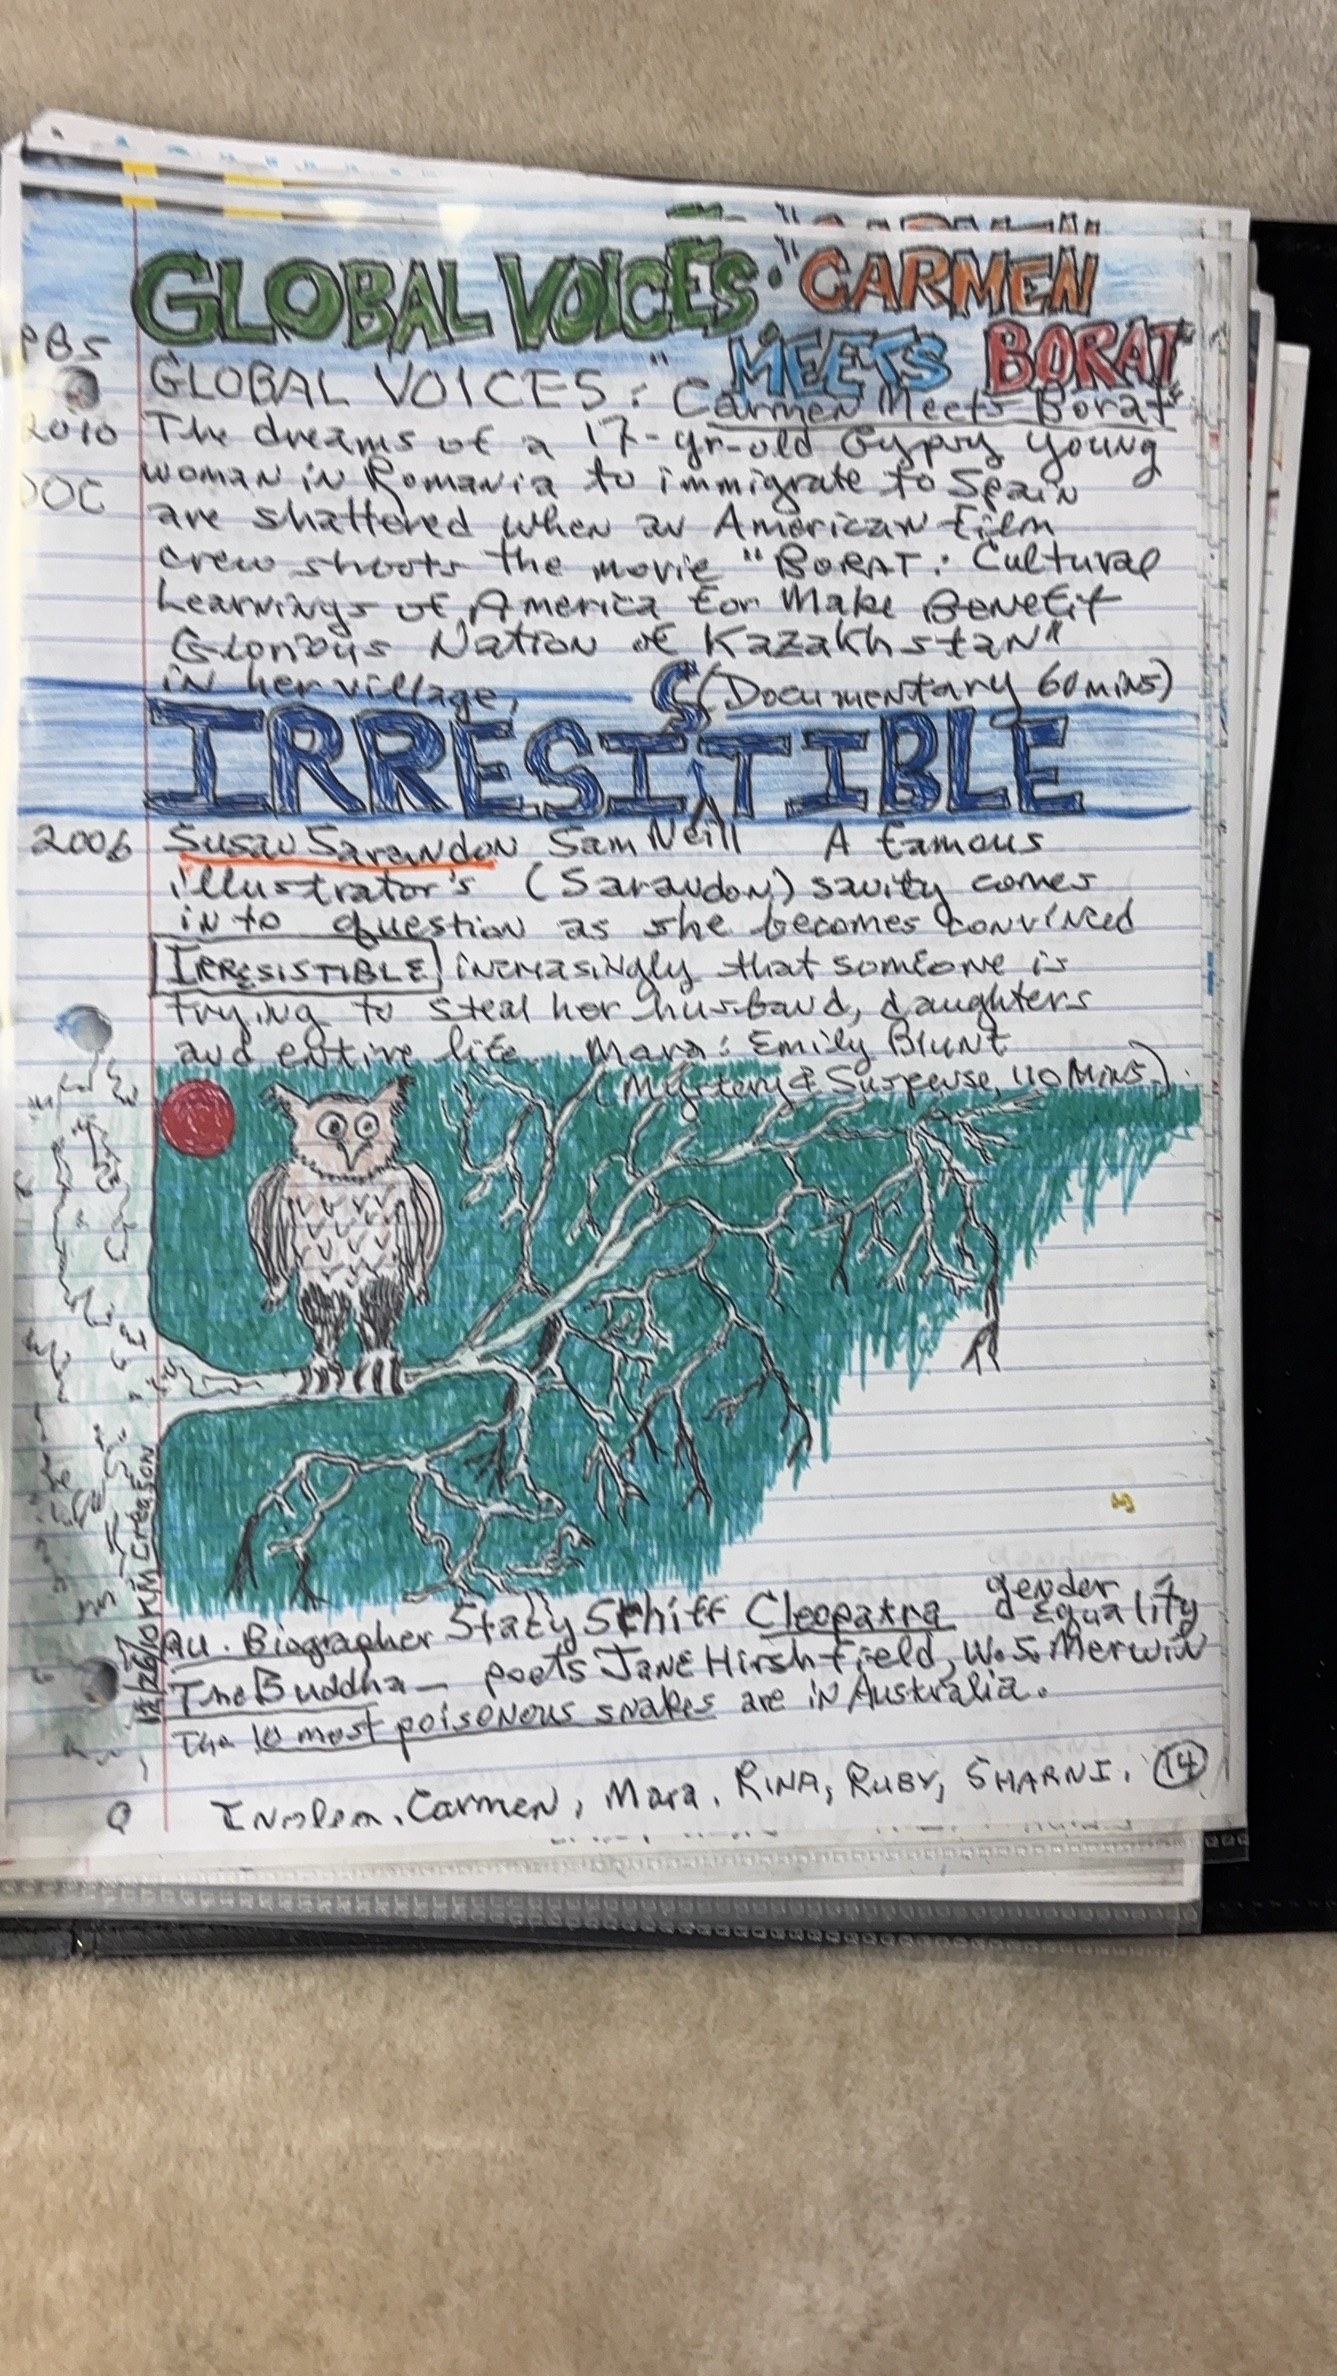 GLOBAL VOICES: "CARMEN
MEETS BORAT"
PBS
GLOBAL VOICES: "Carmen Meets Borat"
2010
The dreams of a 17-yr-old Gypsy young
woman in Romania to immigrate to Spain
DOC
are shattered when an American film
crew shoots the movie "BORAT: Cultural
Learnings of America for Make Benefit
Glorious Nation of Kazakhstan"
in her village, (Documentary 60 mins)
IRRESISTIBLE
2006 Susan Sarandon Sam Neill A famous
illustrator's (Sarandon) sanity comes
in to question as she becomes convinced
IRRESISTIBLE increasingly that someone is
trying to steal her husband, daughters
and entire life. Mara: Emily Blunt
(Mystery & Suspense, 110 Mins.)
12/26/10 KM Creason
gender
au. Biographer Stacy Schiff Cleopatra Equality
The Buddha — poets Jane Hirshfield, W.S. Merwin
The 10 most poisonous snakes are in Australia.
Carmen, Mara, RINA, RUBY, SHARNI. 14